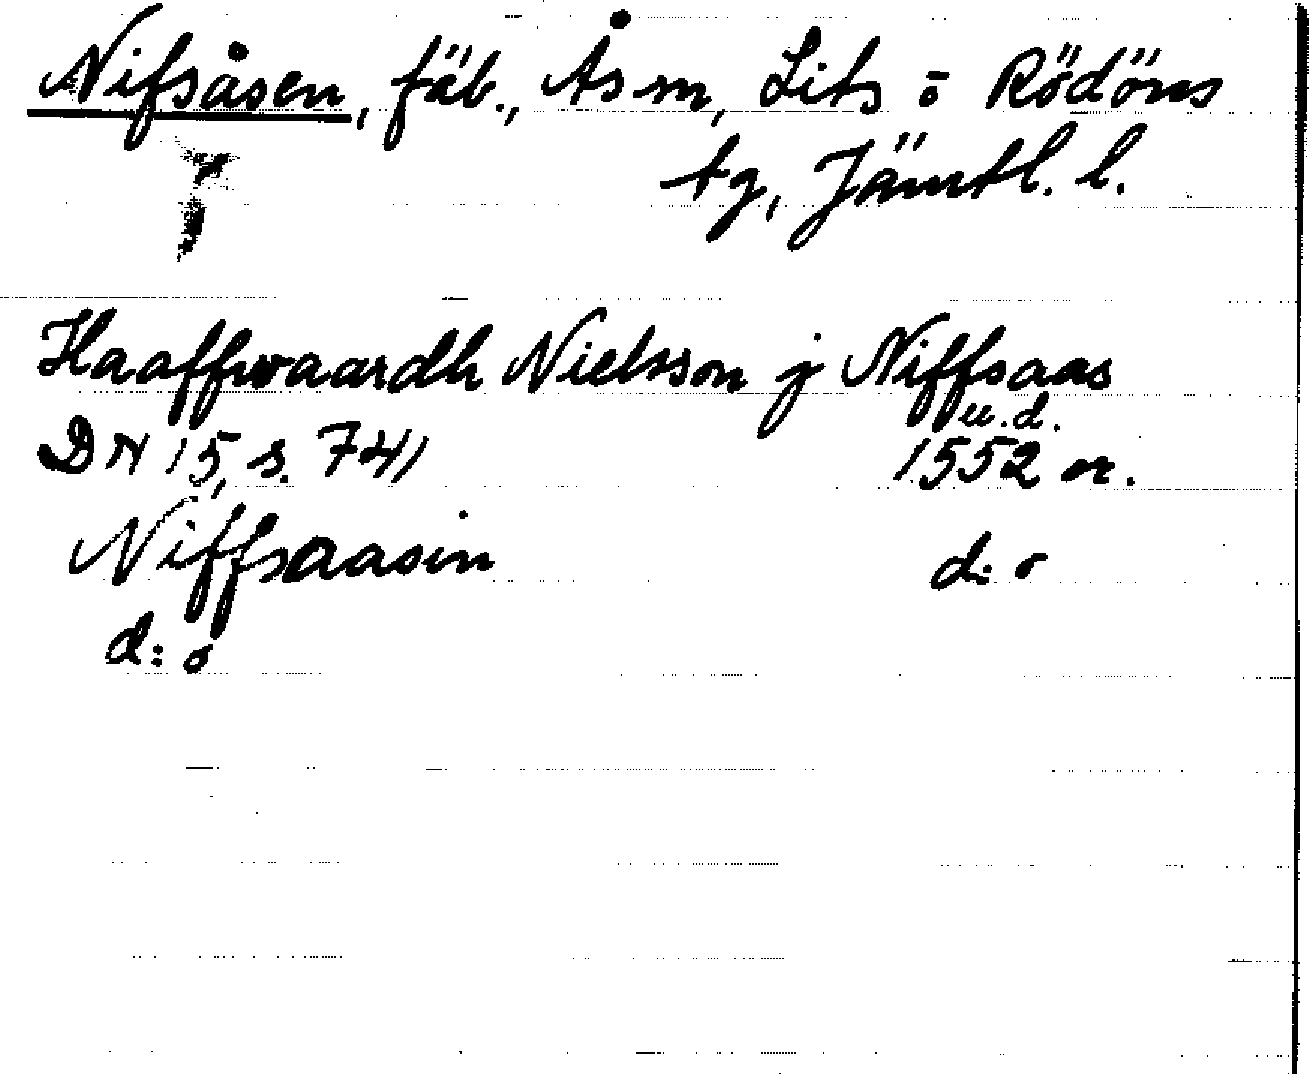 Nifsåsen, fäb., Ås sn, Lits o Rödöns
tg, Jämtl. l.
Haaffwaardh Nielsson j Niffsaas
u.d.
DN 15, s. 741 1552 or.
Niffsaasin d:o
d:o